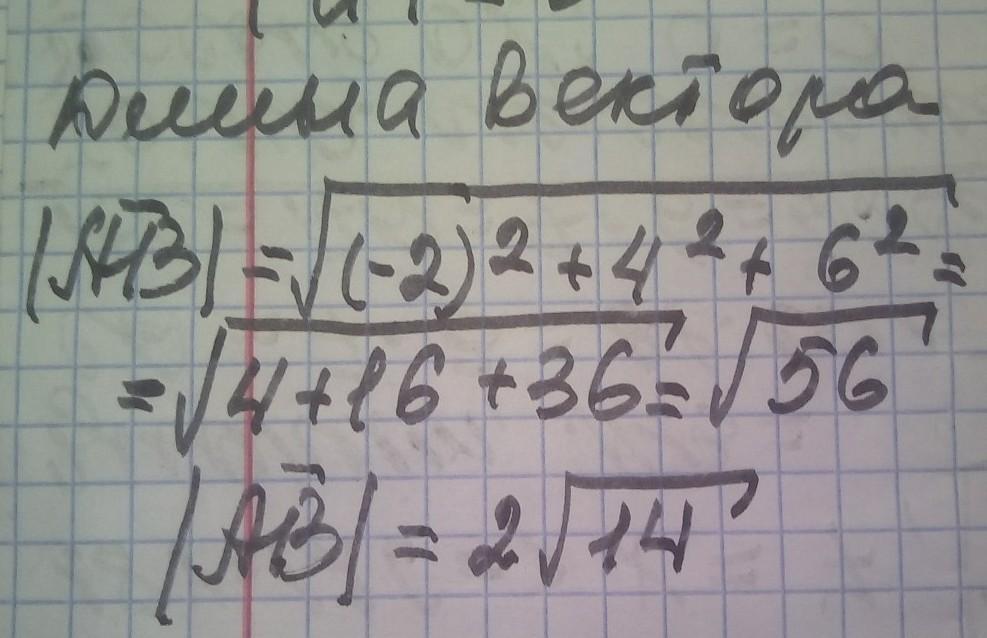 Длина вектора
|AB| = √(-2)² + 4² + 6² =
= √4 + 16 + 36 = √56
|AB| = 2√14